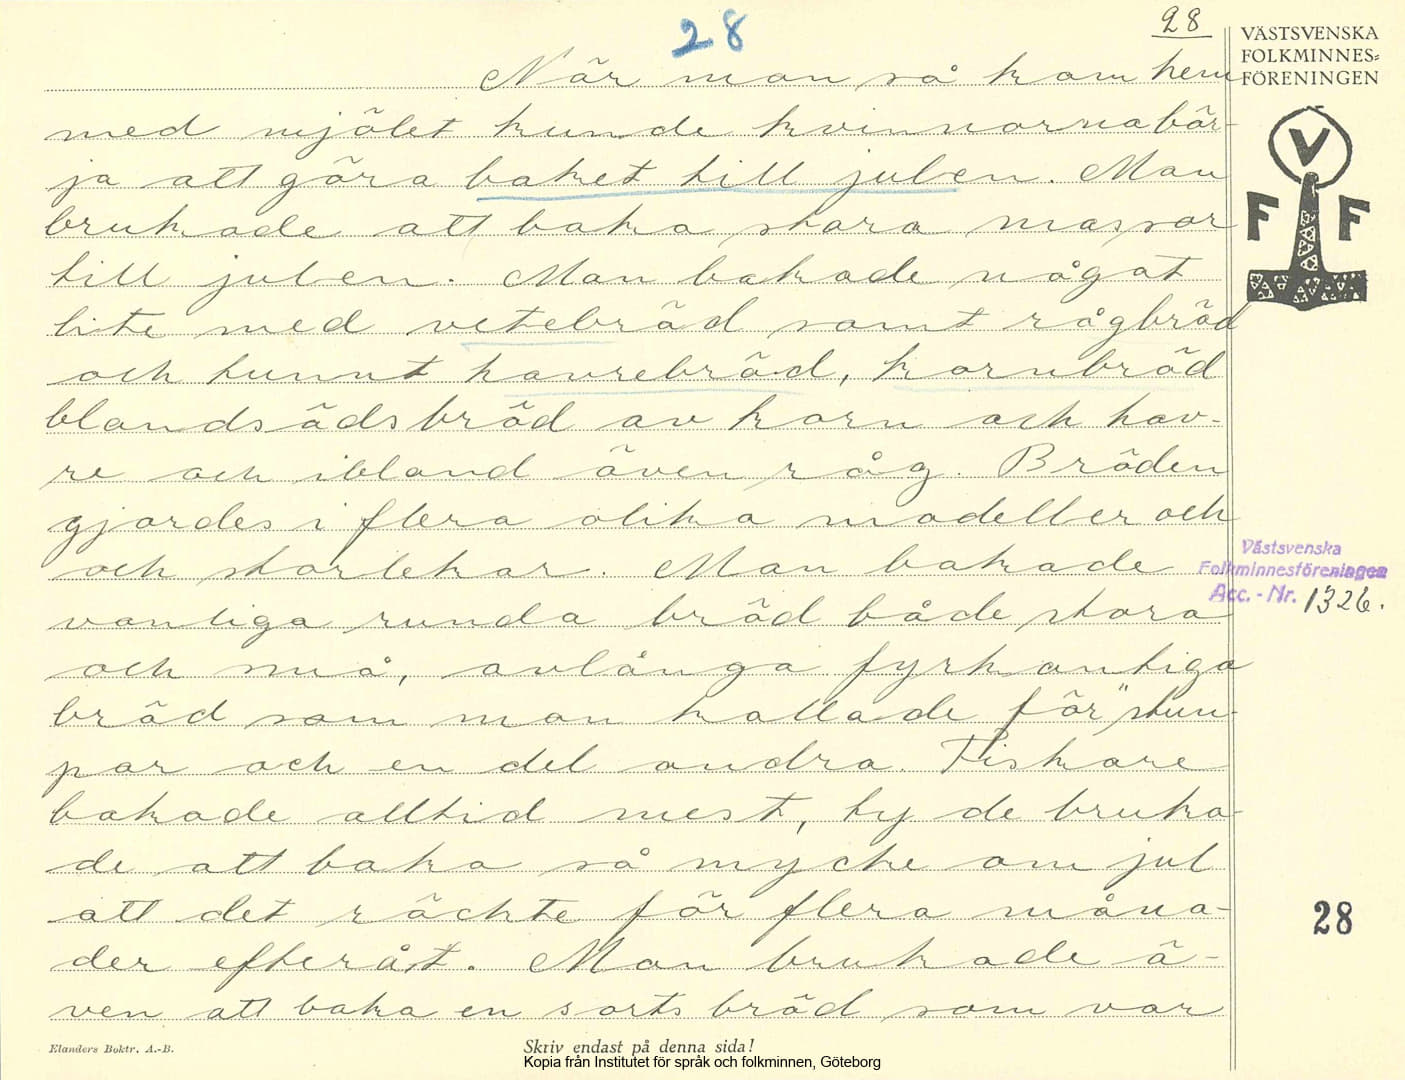 28
28
VÄSTSVENSKA
FOLKMINNES=
FÖRENINGEN
V
F F
När man så kom hem
med mjölet kunde kvinnorna bör-
ja att göra baket till julen. Man
brukade att baka stora massor
till julen. Man bakade något
lite med vetebröd samt rågbröd
och tunnt havrebröd, kornbröd
blandsädsbröd av korn och hav-
re och ibland även råg. Bröden
gjordes i flera olika modeller och
och storlekar. Man bakade
vanliga runda bröd både stora
och små, avlånga fyrkantiga
bröd som man kallade för "stum-
par och en del andra. Fiskare
bakade alltid mest, ty de bruka-
de att baka så mycke om jul
att det räckte för flera måna-
der efteråt. Man brukade ä-
ven att baka en sorts bröd som var
Västsvenska
Folkminnesföreningen
Acc. - Nr. 1326.
28
Elanders Boktr. A.-B.
Skriv endast på denna sida!
Kopia från Institutet för språk och folkminnen, Göteborg